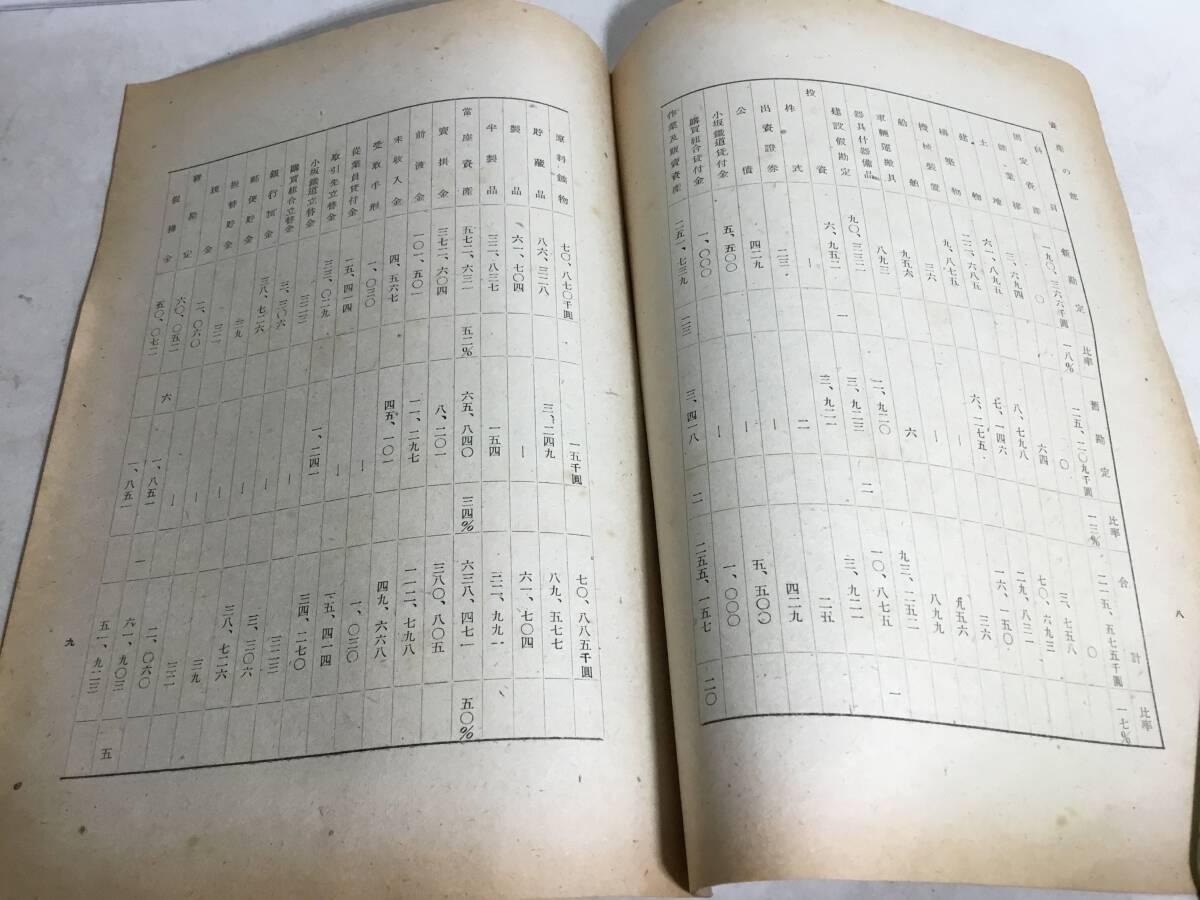 資産の部
科目 新勘定 比率 舊勘定 比率 合計 比率
固定資産 一九〇、三六六千圓 一八% 二五、二〇九千圓 一三% 二一五、五七五千圓 一七%
鑛業權 三、六九四 六四 三、七五八
土地 六一、八九五 八、七九八 七〇、六九三
建物 七、一四六 二九、八三一
構築物 九、八七五 六、二七五 一六、一五〇
機械裝置 三六 ― 三六
船舶 九五六 ― 九五六
車輛運搬具 八九三 六 八九九
器具什器備品 九〇、三三二 二、九二〇 九三、二五二
建設假勘定 六、九五二 一 三、九二三 二 一〇、八七五 一
投資 ― 三、九二一 三、九二一
株式 二三 二 二五
出資證券 四二九 ― 四二九
公債 五、五〇〇 ― 五、五〇〇
小坂鐵道貸付金 一、〇〇〇 ― 一、〇〇〇
購買組合貸付金
作業及販賣資産 二五一、七三九 二三 三、四一八 二 二五五、一五七 二〇
八
原料鑛物 七〇、八七〇千圓 一五千圓 七〇、八八五千圓
貯藏品 八六、三二八 三、二四九 八九、五七七
製品 六一、七〇四 ― 六一、七〇四
半製品 三二、八三七 一五四 三二、九九一
當座資産 五七二、六三一 五二% 六五、八四〇 三四% 六三八、四七一 五〇%
賣掛金 三七二、六〇四 八、二〇一 三八〇、八〇五
前渡金 一〇一、五〇一 一一、二九七 一一二、七九八
未收入金 四、五六七 四五、一〇一 四九、六六八
受取手形 一、〇三〇 ― 一、〇三〇
從業員貸付金 一五、四一四 ― 一五、四一四
取引先立替金 三三、〇二九 一、二四一 三四、二七〇
小坂鐵道立替金 三二三 ― 三二三
購買組合立替金 三、三〇六 ― 三、三〇六
銀行預金 三八、七二六 ― 三八、七二六
郵便貯金
振替貯金 三九 ― 三九
現金 三二一 ― 三二一
雜勘定 六〇、〇五二 六 一、八五一 一 六一、九〇三 五
假拂金 五〇、〇七二 一、八五一 五一、九二三
九